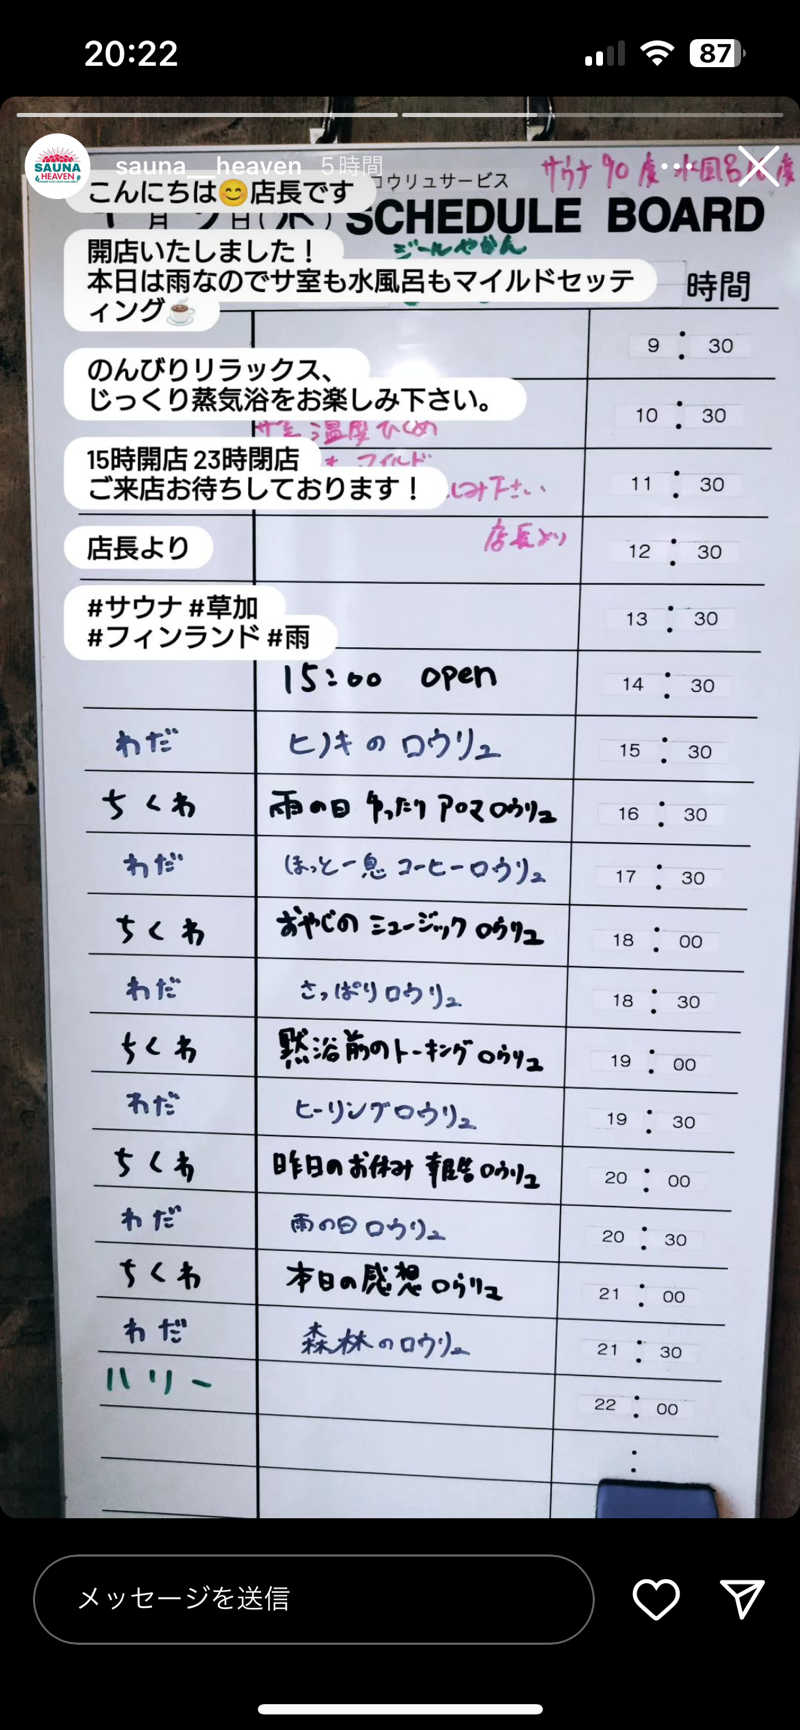 20:22
87
SAUNA
HEAVEN
sauna__heaven 5時間
こんにちは😊店長です
ロウリュサービス
サウナ90度 水風呂
度
月
日(
SCHEDULE BOARD
開店いたしました！
本日は雨なのでサ室も水風呂もマイルドセッテ
ィング☕
時間
9:30
のんびりリラックス、
じっくり蒸気浴をお楽しみ下さい。
10:30
温度ひくめ
マイルド
15時開店 23時閉店
ご来店お待ちしております！
しみ下さい
11:30
店長より
店長より
12:30
#サウナ #草加
#フィンランド #雨
13:30
15:00 open 14:30
わだ ヒノキのロウリュ 15:30
ちくわ 雨の日ゆったりアロマロウリュ 16:30
わだ ほっと一息コーヒーロウリュ 17:30
ちくわ おやじのミュージックロウリュ 18:00
わだ さっぱりロウリュ 18:30
ちくわ 黙浴前のトーキングロウリュ 19:00
わだ ヒーリングロウリュ 19:30
ちくわ 昨日のお休み報告ロウリュ 20:00
わだ 雨の日ロウリュ 20:30
ちくわ 本日の感想ロウリュ 21:00
わだ 森林のロウリュ 21:30
ハリー 22:00
:
メッセージを送信